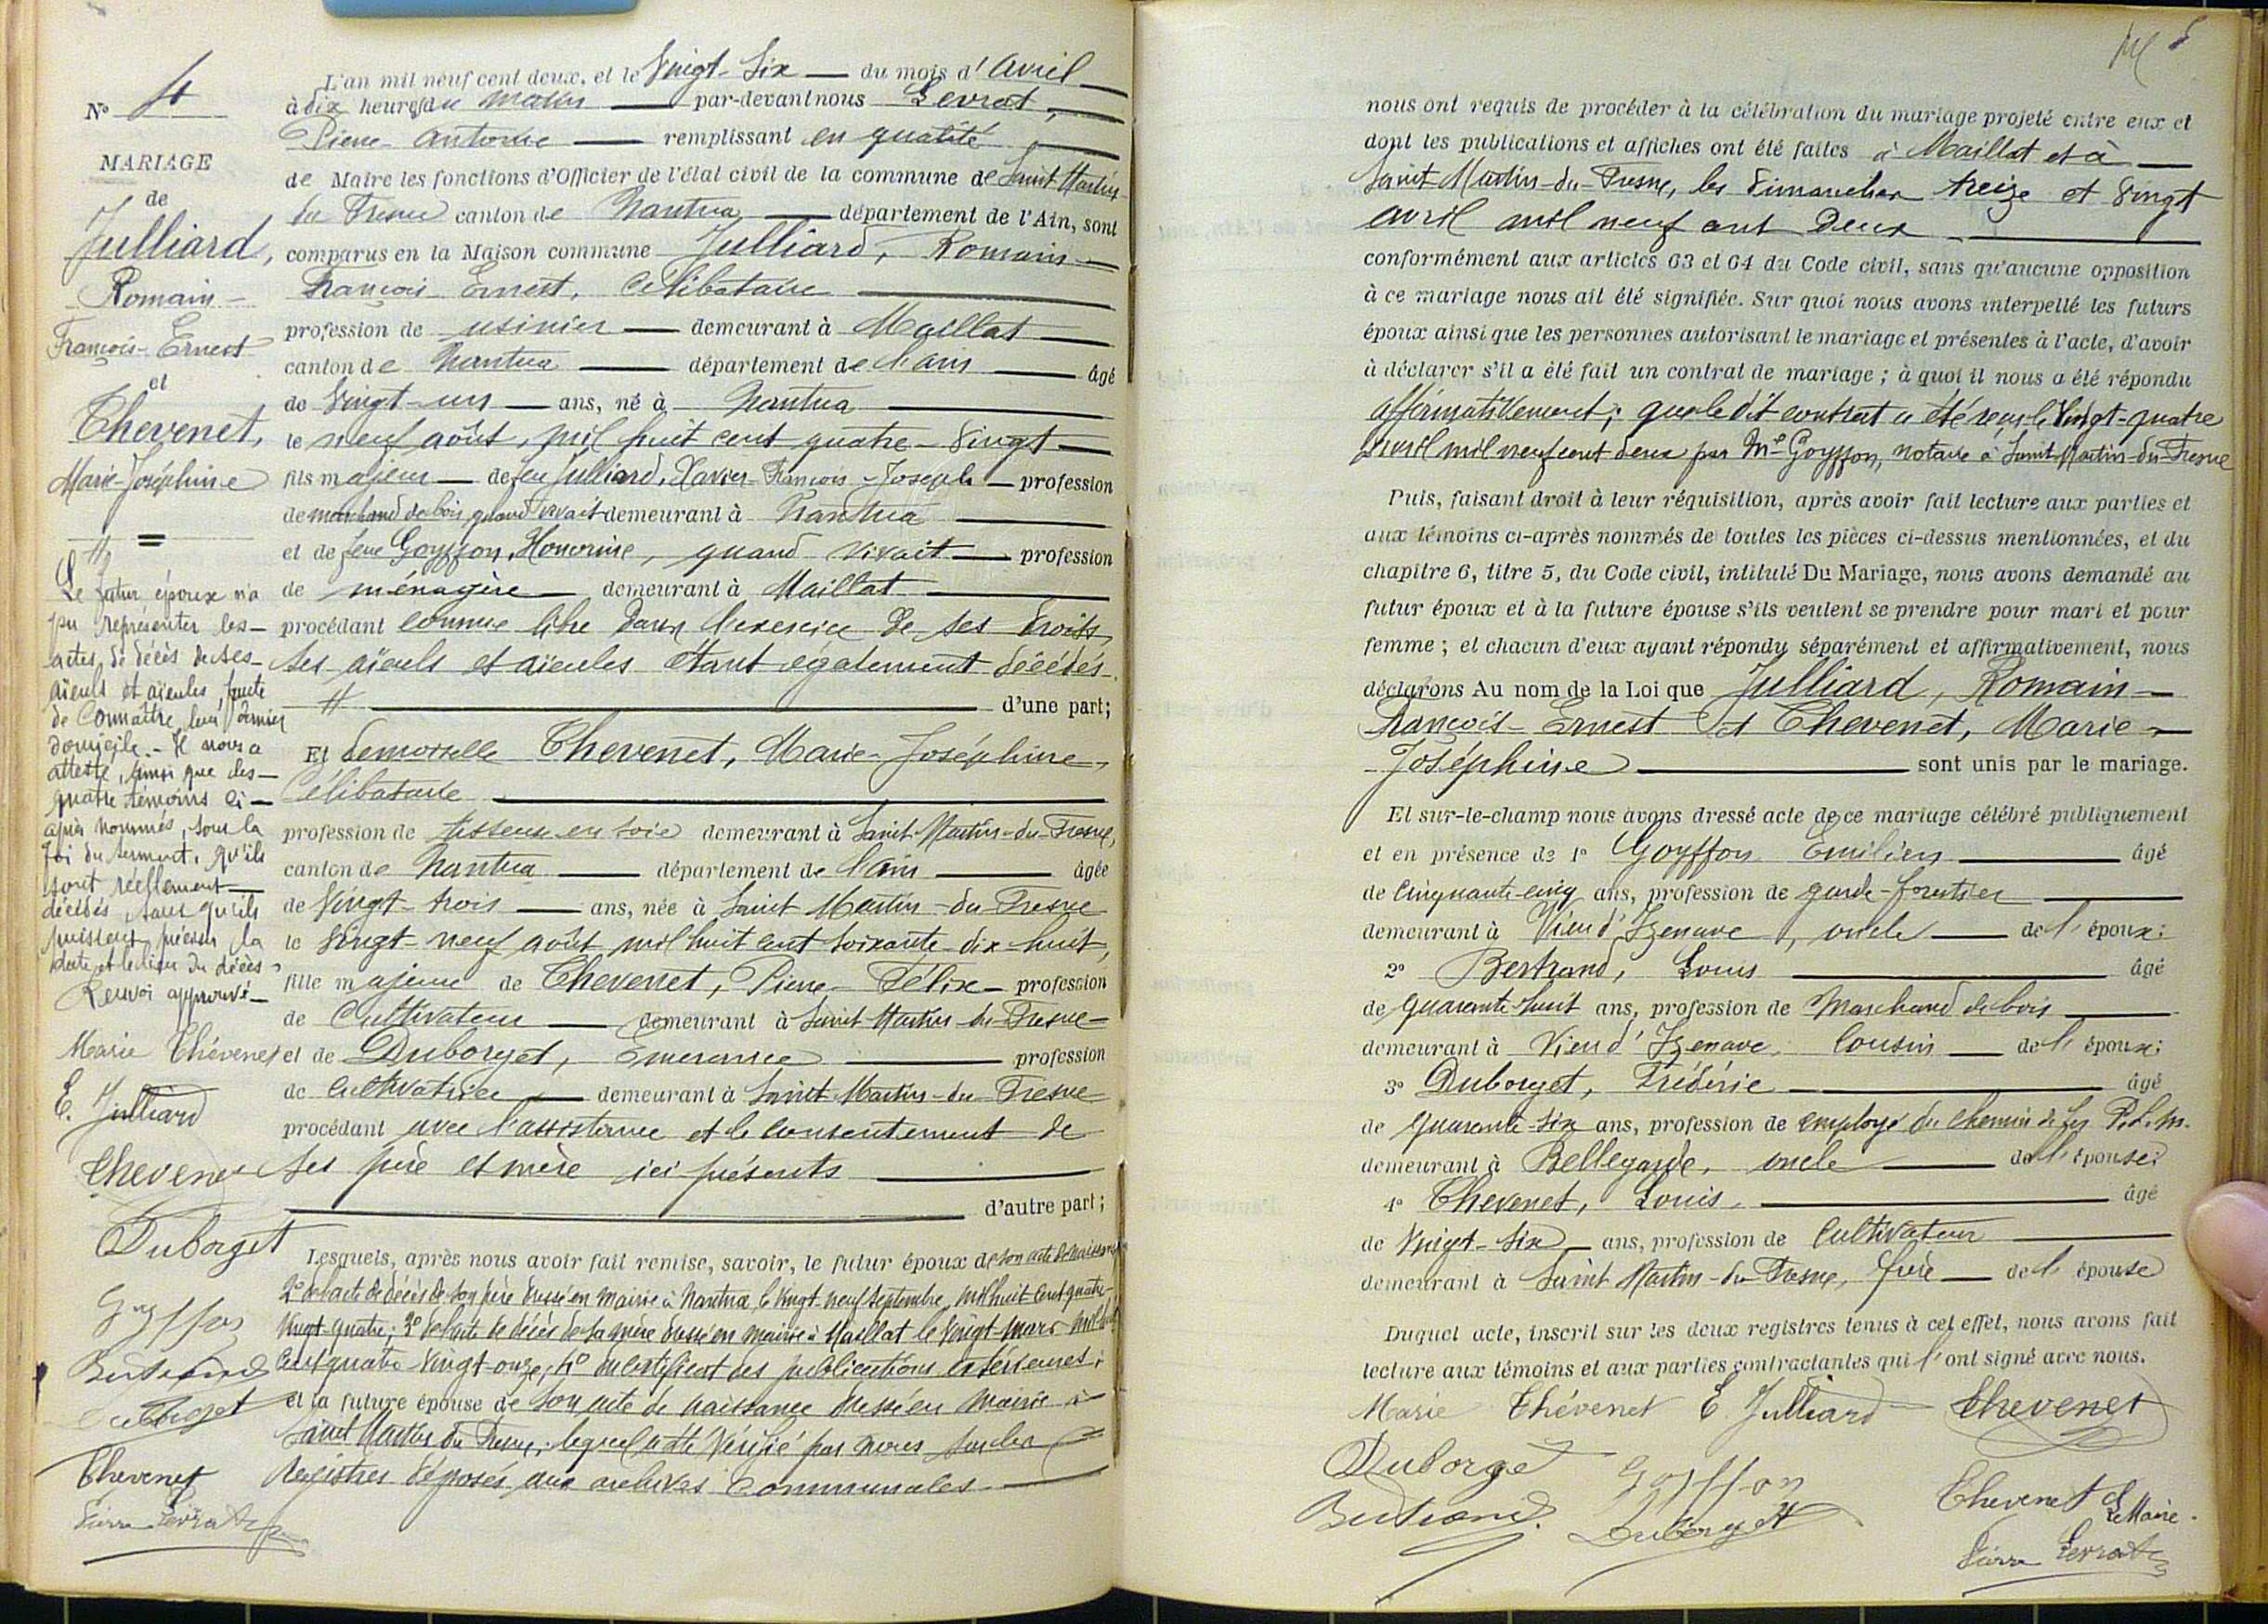 N° 4
MARIAGE
de
Julliard,
Romain -
François-Ernest
et
Chevenet,
Marie-Joséphine
Le futur époux n'a
pu représenter les
actes de décès de ses
aïeuls et aïeules, faute
de connaître leur dernier
domicile. - Il nous a
attesté, ainsi que les
quatre témoins ci-
après nommés, sous la
foi du serment, qu'ils
sont réellement
décédés, sans qu'ils
puissent préciser la
date et le lieu du décès
Renvoi approuvé -
Marie Thévenet
E. Julliard
Chevenet
Duborget
Goyffon
Bertrand
Duborget
Chevenet
Pierre Levrat
L'an mil neuf cent deux, et le Vingt-Six du mois d'Avril
à dix heures du matin par-devant nous Levrat,
Pierre Antoine remplissant en qualité
de Maire les fonctions d'Officier de l'état civil de la commune de Saint-Martin-
du Fresne canton de Nantua département de l'Ain, sont
comparus en la Maison commune Julliard, Romain
François Ernest, Célibataire
profession de usinier demeurant à Maillat
canton de Nantua département de l'ain âgé
de Vingt-un ans, né à Nantua
le neuf août, mil huit cent quatre-Vingt
fils majeur de feu Julliard, Xavier-François-Joseph profession
de marchand de bois quand vivait demeurant à Nantua
et de feue Goyffon, Honorine, quand vivait profession
de ménagère demeurant à Maillat
procédant comme libre dans l'exercice de ses droits,
ses aïeuls et aïeules étant également décédés
d'une part;
Et demoiselle Chevenet, Marie-Joséphine,
Célibataire
profession de tisseuse en soie demeurant à Saint-Martin-du-Fresne,
canton de Nantua département de l'Ain âgée
de Vingt-trois ans, née à Saint Martin-du Fresne
le Vingt-neuf août mil huit cent soixante-dix-huit,
fille majeure de Chevenet, Pierre-Félix profession
de Cultivateur demeurant à Saint-Martin-du-Fresne
et de Duborget, Emerance profession
de Cultivatrice demeurant à Saint Martin-du-Fresne
procédant avec l'assistance et le consentement de
ses père et mère ici présents
d'autre part;
Lesquels, après nous avoir fait remise, savoir, le futur époux de son acte de naissance
2° de l'acte de décès de son père dressé en mairie à Nantua, le Vingt-neuf septembre, mil huit cent quatre-
Vingt-quatre; 3° de l'acte de décès de sa mère dressé en mairie à Maillat le Vingt mars mil huit
cent quatre Vingt-onze; 4° du certificat des publications extérieures;
et la future épouse de son acte de naissance dressé en mairie à
Saint Martin du Fresne, lequel a été vérifié par nous sur les
registres déposés aux archives communales
nous ont requis de procéder à la célébration du mariage projeté entre eux et
dont les publications et affiches ont été faites à Maillat et à
Saint-Martin-du-Fresne, les Dimanches treize et Vingt
avril mil neuf cent Deux
conformément aux articles 63 et 64 du Code civil, sans qu'aucune opposition
à ce mariage nous ait été signifiée. Sur quoi nous avons interpellé les futurs
époux ainsi que les personnes autorisant le mariage et présentes à l'acte, d'avoir
à déclarer s'il a été fait un contrat de mariage ; à quoi il nous a été répondu
affirmativement; que le dit contrat a été reçu le Vingt-quatre
avril mil neuf cent deux par Me Goyffon, notaire à Saint-Martin-du-Fresne
Puis, faisant droit à leur réquisition, après avoir fait lecture aux parties et
aux témoins ci-après nommés de toutes les pièces ci-dessus mentionnées, et du
chapitre 6, titre 5, du Code civil, intitulé Du Mariage, nous avons demandé au
futur époux et à la future épouse s'ils veulent se prendre pour mari et pour
femme ; et chacun d'eux ayant répondu séparément et affirmativement, nous
déclarons Au nom de la Loi que Julliard, Romain
François-Ernest et Chevenet, Marie
Joséphine sont unis par le mariage.
Et sur-le-champ nous avons dressé acte de ce mariage célébré publiquement
et en présence de 1° Goyffon Emilien âgé
de Cinquante-cinq ans, profession de garde-forestier
demeurant à Vieu d'Izenave, oncle de l'époux;
2° Bertrand, Louis âgé
de quarante-huit ans, profession de Marchand de bois
demeurant à Vieu d'Izenave, Cousin de l'époux;
3° Duborget, Frédéric âgé
de quarante-six ans, profession de employé du chemin de fer P.L.M.
demeurant à Bellegarde, oncle de l'épouse;
4° Chevenet, Louis, âgé
de Vingt-six ans, profession de Cultivateur
demeurant à Saint Martin-du-Fresne, frère de l'épouse
Duquel acte, inscrit sur les deux registres tenus à cet effet, nous avons fait
lecture aux témoins et aux parties contractantes qui l'ont signé avec nous.
Marie Thévenet E. Julliard Chevenet
Duborget Goyffon
Bertrand Duborget Chevenet L
Le Maire.
Pierre Levrat